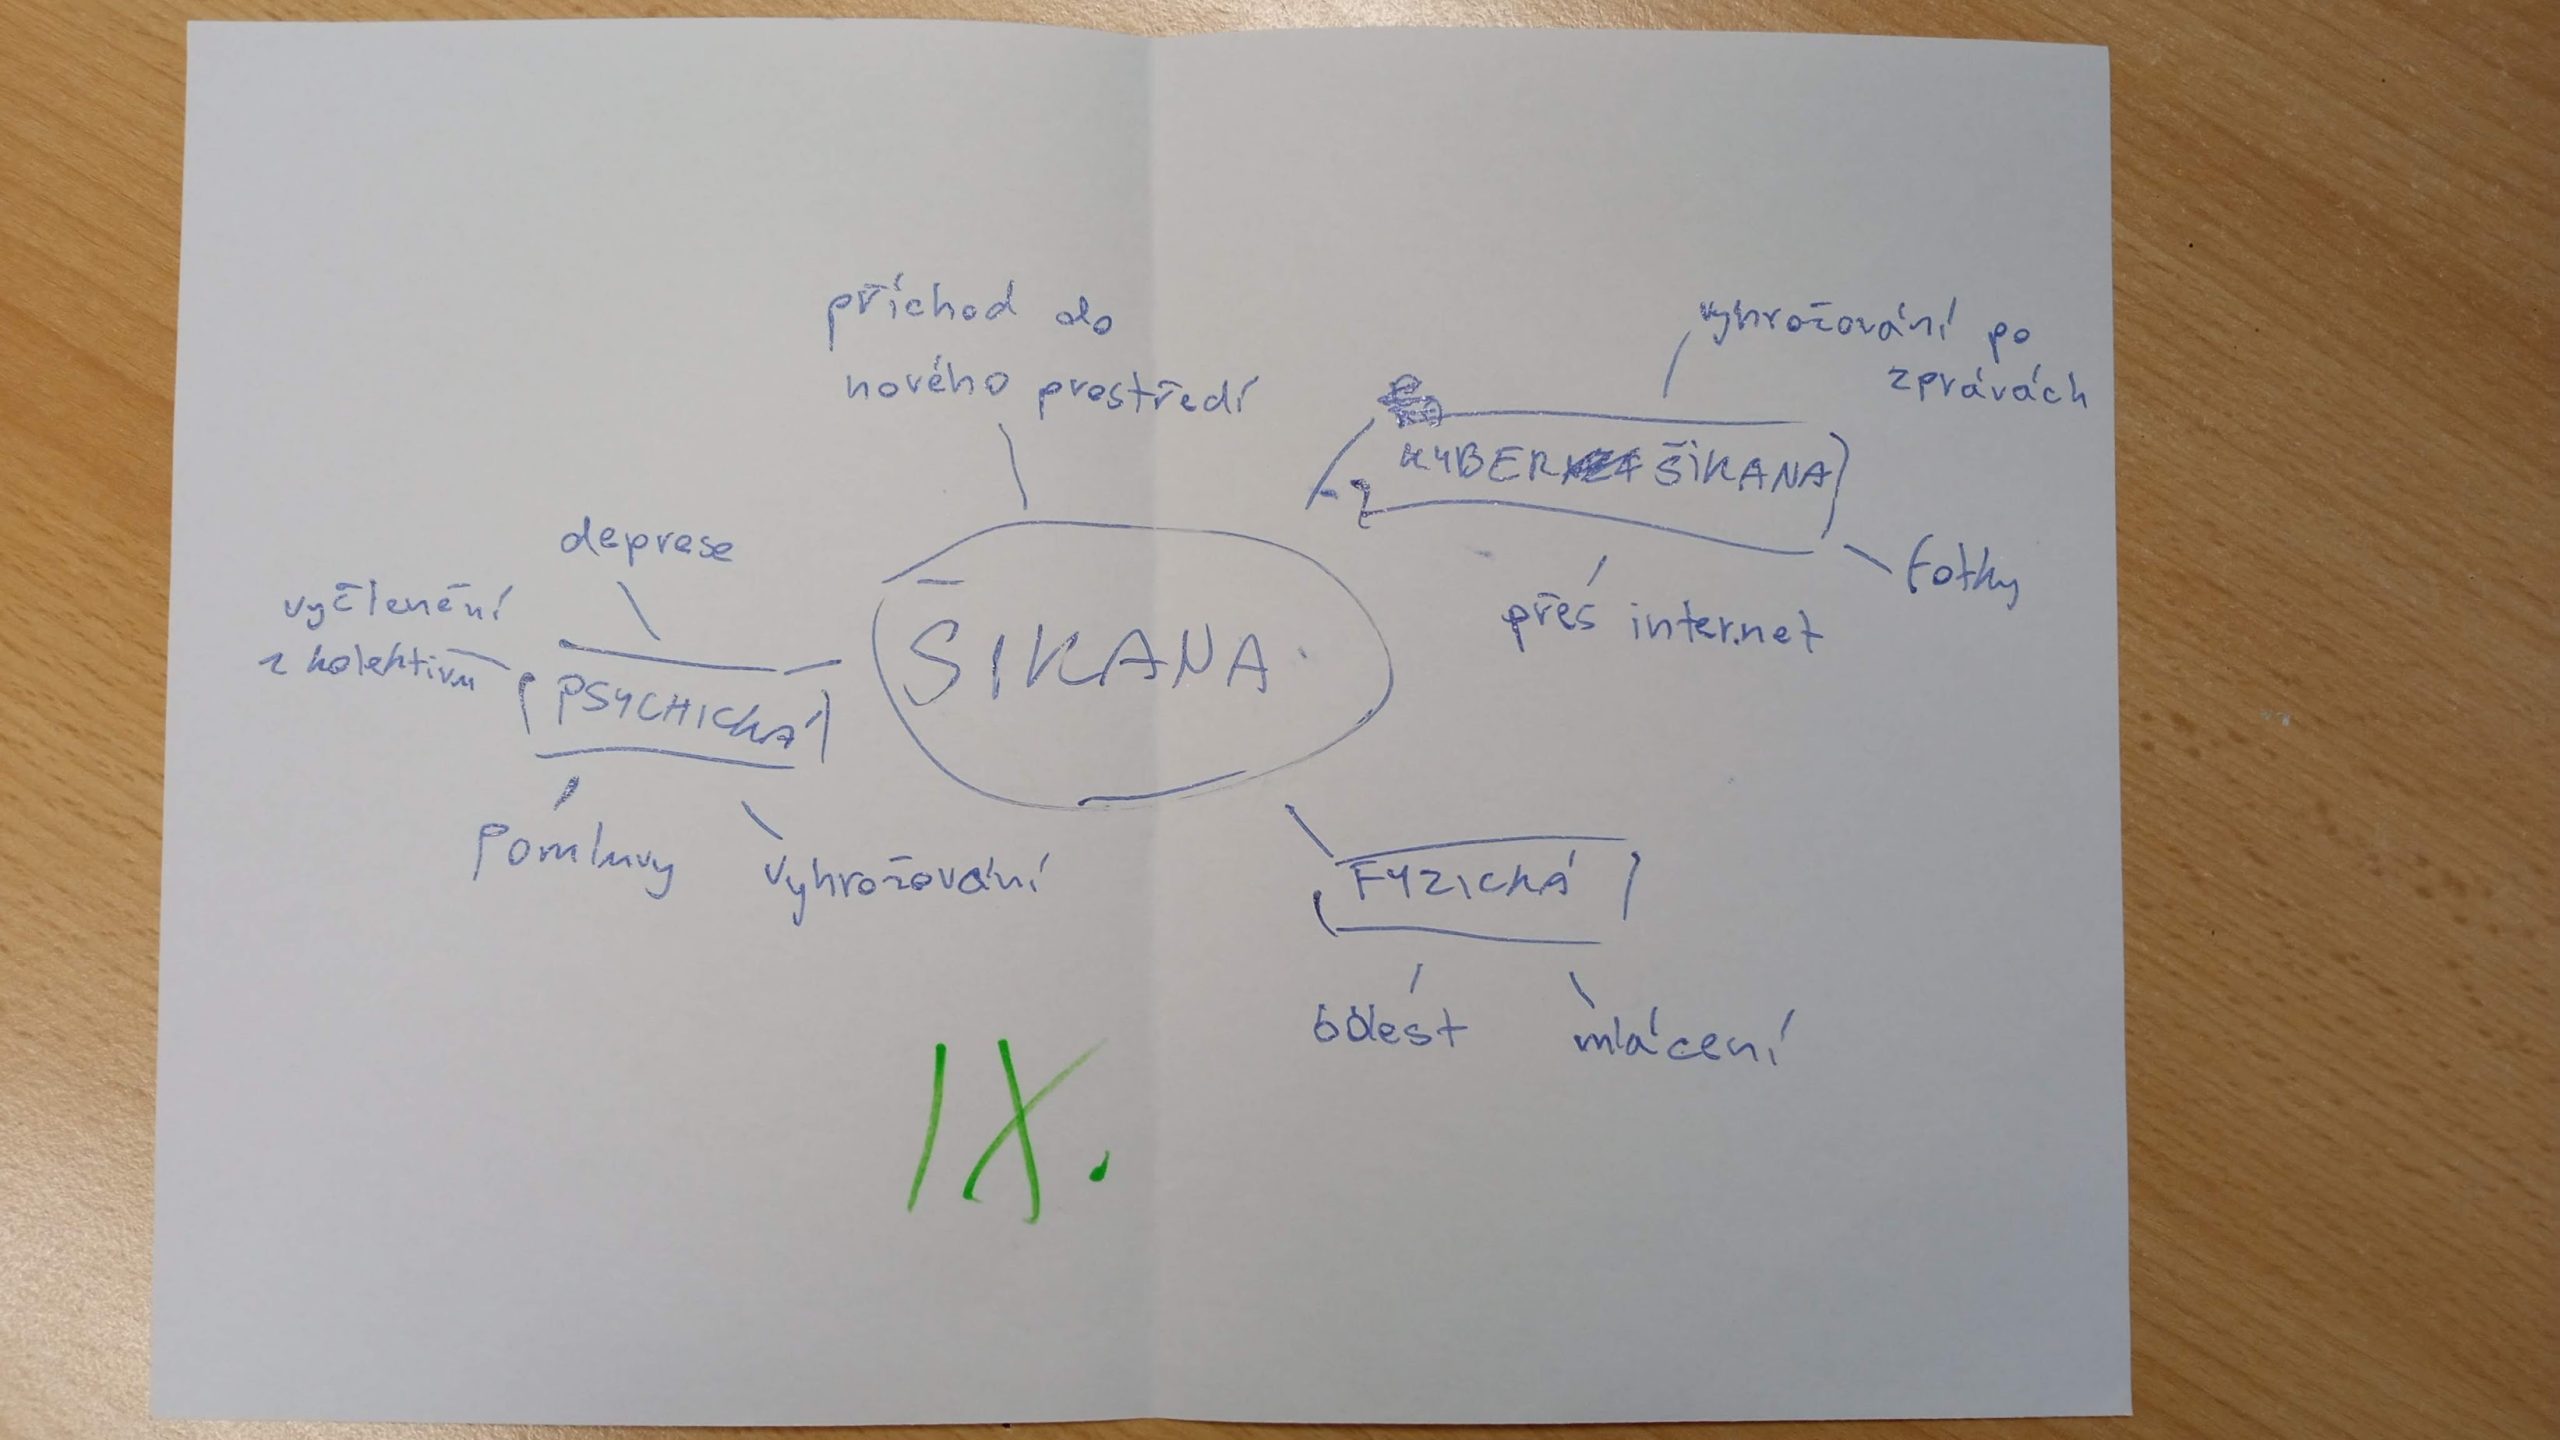 příchod do
nového prostředí
vyhrožování po
zprávách
KYBER ŠIKANA
fotky
přes internet
deprese
vyčlenění
z kolektivu
PSYCHICKÁ
ŠIKANA
pomluvy
vyhrožování
FYZICKÁ
bolest
mlácení
IX.